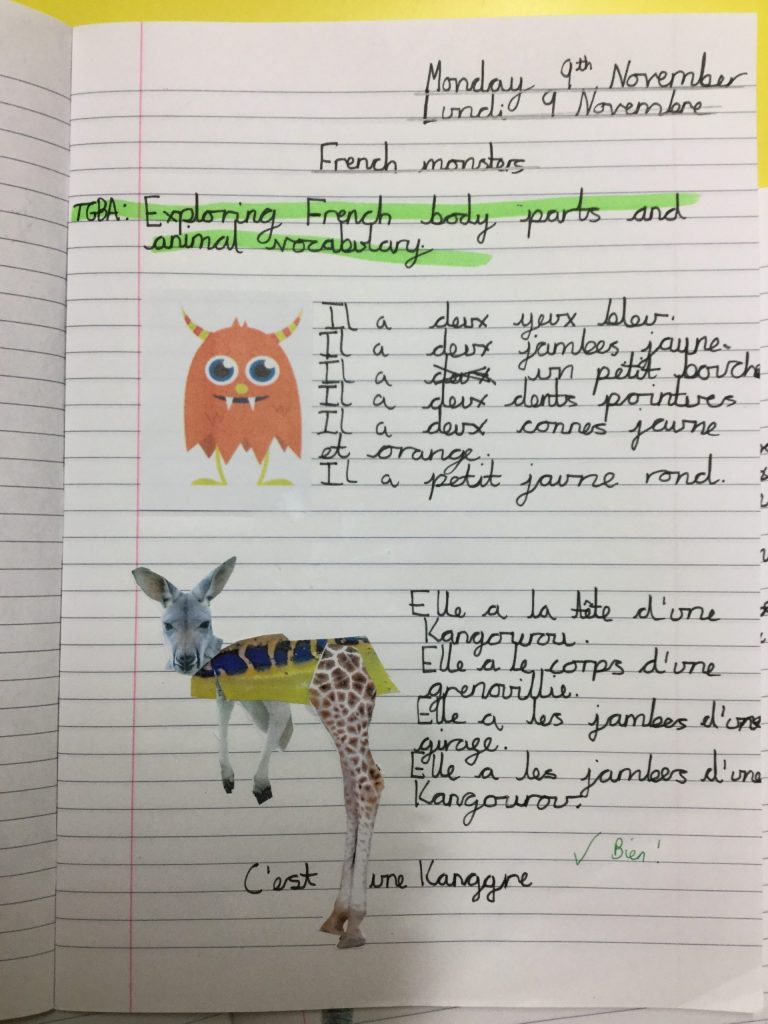 Monday 9th November
Lundi 9 Novembre
French monsters
TGBA: Exploring French body parts and
animal vocabulary.
Il a deux yeux bleu.
Il a deux jambes jayne.
Il a deux un petit bouche
Il a deux dents pointues
Il a deux connes jaune
et orange.
Il a petit jaune rond.
Elle a la tête d'une
Kangourou.
Elle a le corps d'une
grenouillie.
Elle a les jambes d'une
girage.
Elle a les jambers d'une
Kangourou.
✓ Bien!
C'est une Kanggre